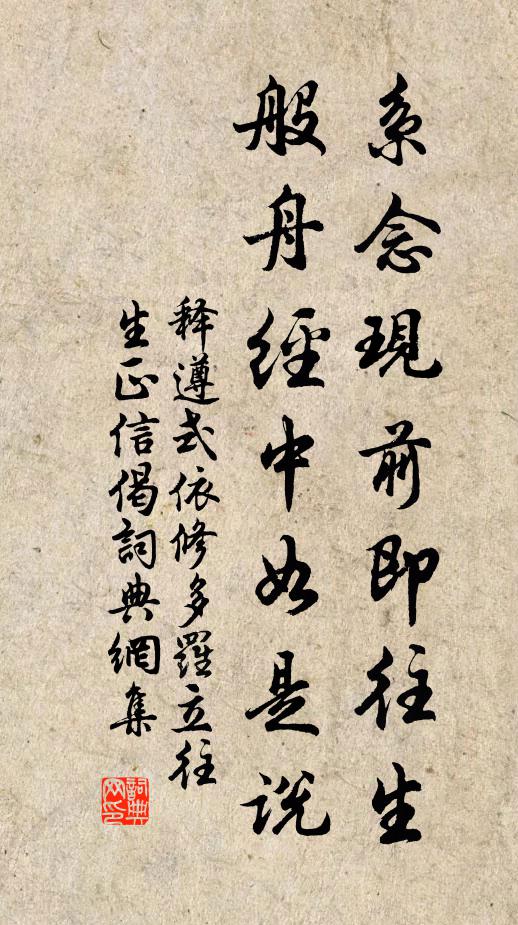 系念現前即往生
般舟經中如是説
释遵式依修多羅立往
生正信偈詞典網集
詞典
网印